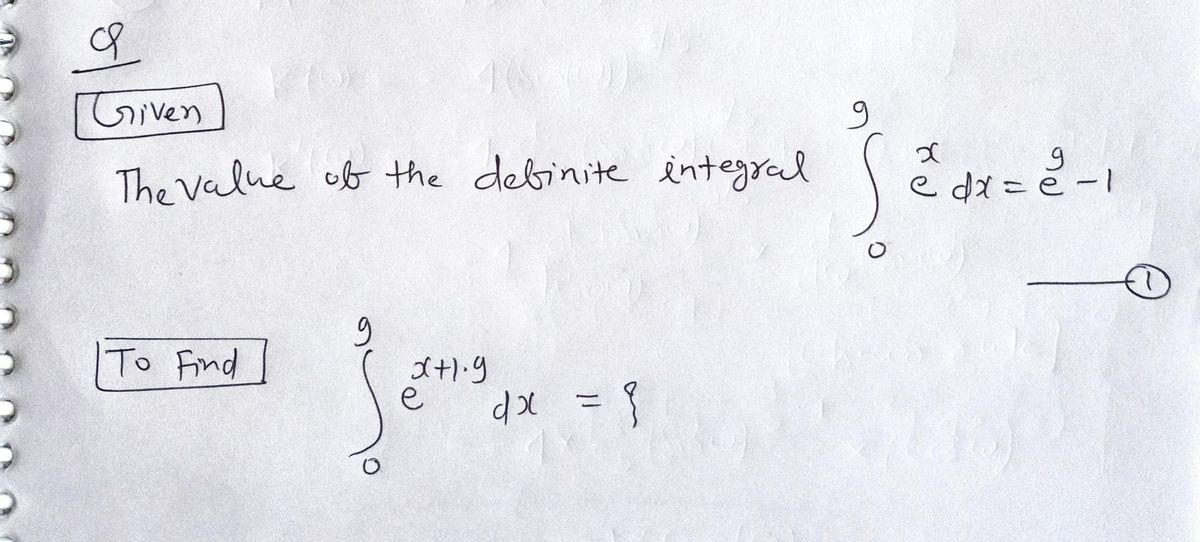 Q
Given
The value of the definite integral ∫₀⁹ eˣ dx = e⁹ - 1
①
To Find ∫₀⁹ e^(x+1.9) dx = ?